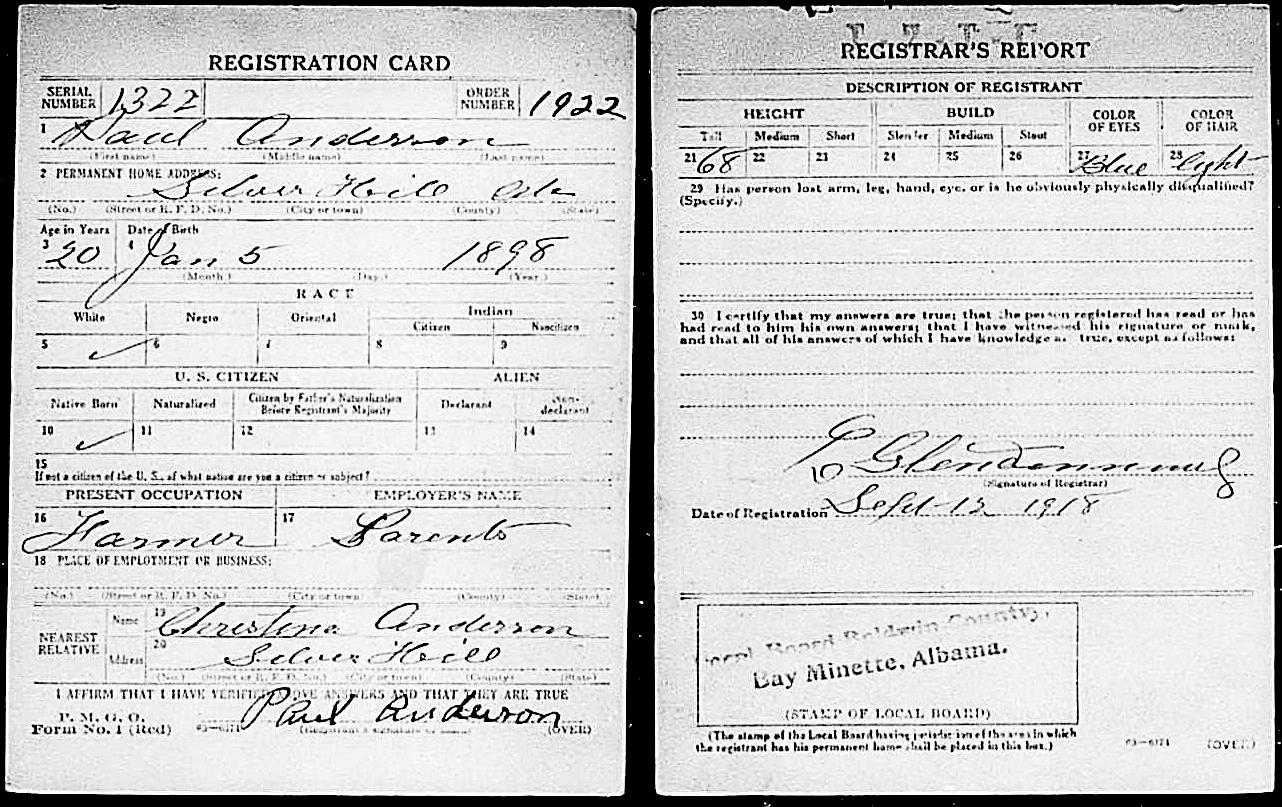 REGISTRATION CARD
SERIAL NUMBER 1322 ORDER NUMBER 1922
1 Paul Anderson
(First name) (Middle name) (Last name)
2 PERMANENT HOME ADDRESS:
Silver Hill Ala
(No.) (Street or R. F. D. No.) (City or town) (County) (State)
Age in Years Date of Birth
3 20 4 Jan 5 1898
(Month.) (Day.) (Year.)
RACE
White Negro Oriental Indian
Citizen Noncitizen
5 ✓ 6 7 8 9
U. S. CITIZEN ALIEN
Native Born Naturalized Citizen by Father's Naturalization Before Registrant's Majority Declarant Non-declarant
10 ✓ 11 12 13 14
15
If not a citizen of the U. S., of what nation are you a citizen or subject?
PRESENT OCCUPATION EMPLOYER'S NAME
16 Farmer 17 Parents
18 PLACE OF EMPLOYMENT OR BUSINESS:
(No.) (Street or R. F. D. No.) (City or town) (County) (State)
NEAREST RELATIVE Name 19 Christina Anderson
Address 20 Silver Hill
(No.) (Street or R. F. D. No.) (City or town) (County) (State)
I AFFIRM THAT I HAVE VERIFIED ABOVE ANSWERS AND THAT THEY ARE TRUE
P. M. G. O.
Form No. 1 (Red) 03—6171 Paul Anderson (OVER)
(Registrant's signature or mark)
REGISTRAR'S REPORT
DESCRIPTION OF REGISTRANT
HEIGHT BUILD COLOR OF EYES COLOR OF HAIR
Tall Medium Short Slender Medium Stout
21 68 22 23 24 25 26 27 Blue 28 light
29 Has person lost arm, leg, hand, eye, or is he obviously physically disqualified?
(Specify.)
30 I certify that my answers are true; that the person registered has read or has
had read to him his own answers; that I have witnessed his signature or mark,
and that all of his answers of which I have knowledge are true, except as follows:
Glendenning
(Signature of Registrar)
Date of Registration Sept 12 1918
Local Board Baldwin County,
Bay Minette, Albama.
(STAMP OF LOCAL BOARD)
(The stamp of the Local Board having jurisdiction of the area in which
the registrant has his permanent home shall be placed in this box.)
03—6171 (OVER)